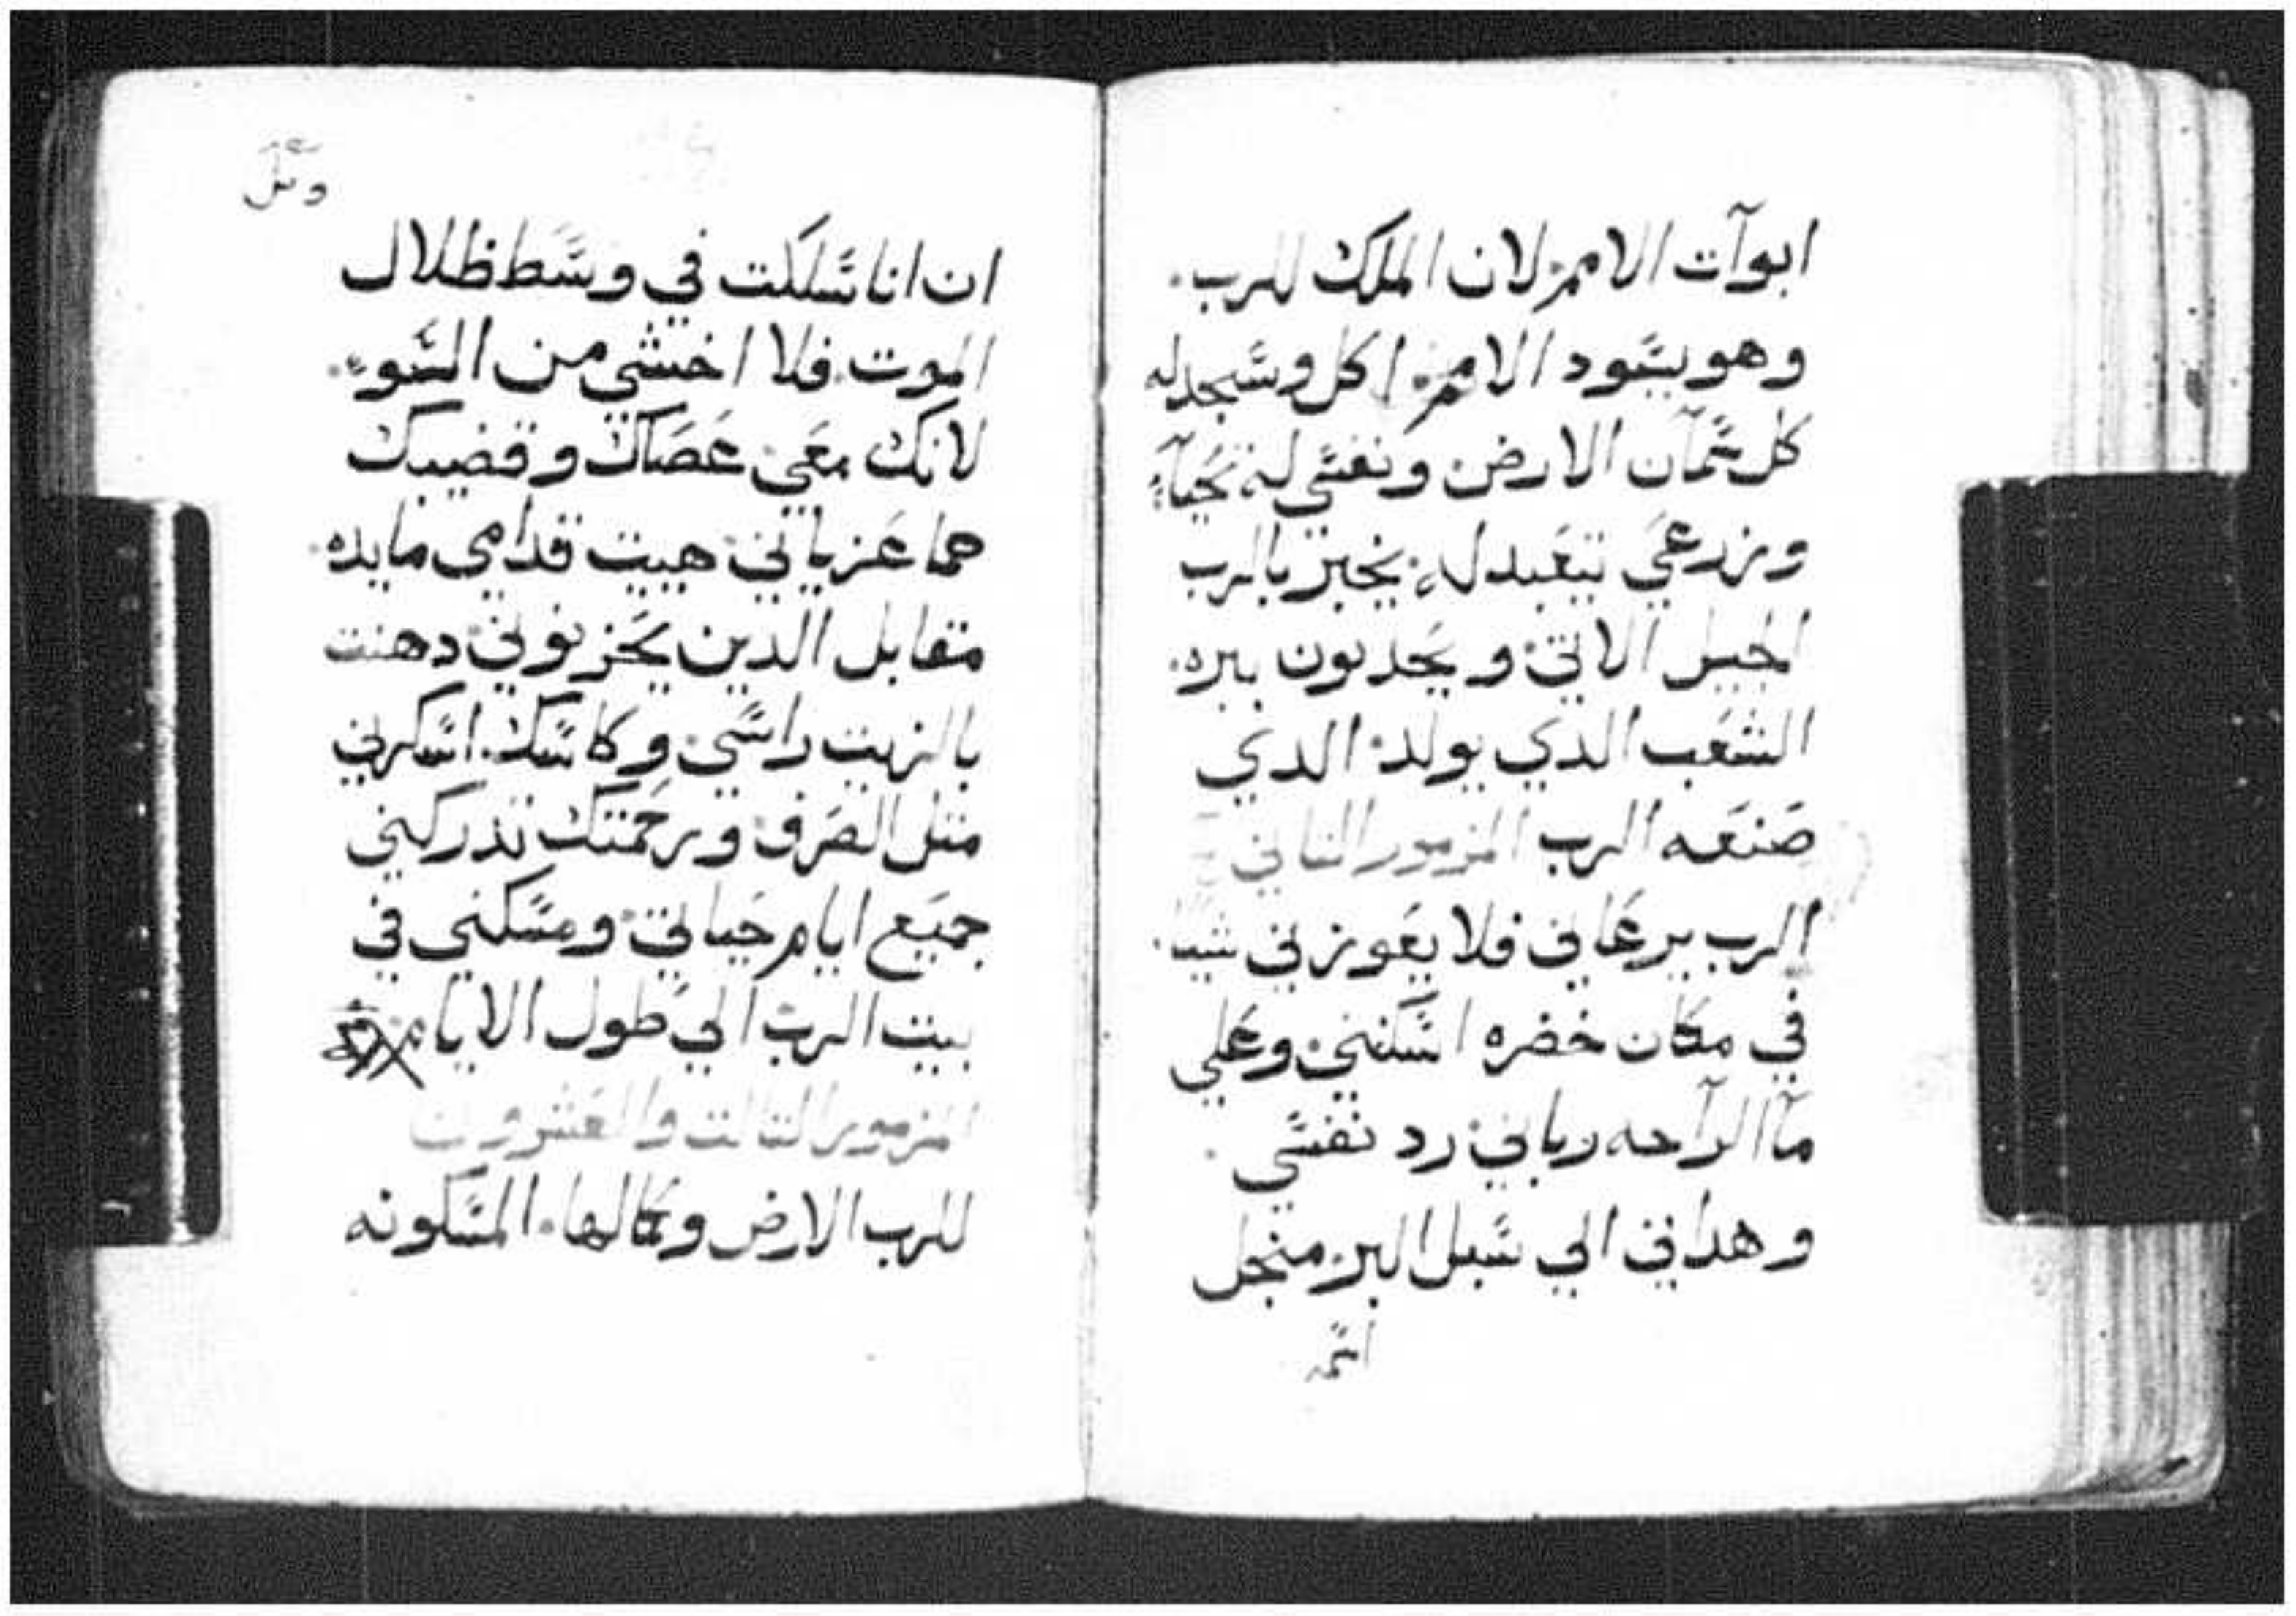 ابوآت الامم لان الملك للرب.
وهو يسود الامم. اكل وسجد له
كل سمآن الارض ونفسي له تحيا
وزرعي تتعبد له يخبر بالرب
الجيل الاتي ويحدثون ببره.
الشعب الذي يولد الذي
صنعه الرب المزمور الثاني
الرب يرعاني فلا يعوزني شيا.
في مكان خضره اسكنني وعلي
مآ الراحه رباني رد نفسي.
وهداني الي سبل البر من اجل
اسمه
ان انا سلكت في وسط ظلال
الموت. فلا اخشي من السوء.
لانك معي عصاك وقضيبك
هما عزياني هييت قدامي مايده.
مقابل الدين يحزنوني دهنت
بالزيت راسي وكاسك. اسكرني
مثل الصرف ورحمتك تدركني
جميع ايام حياتي ومسكني في
بيت الرب الي طول الايام
المزمور الثالث والعشرون
للرب الارض وكمالها. المسكونه